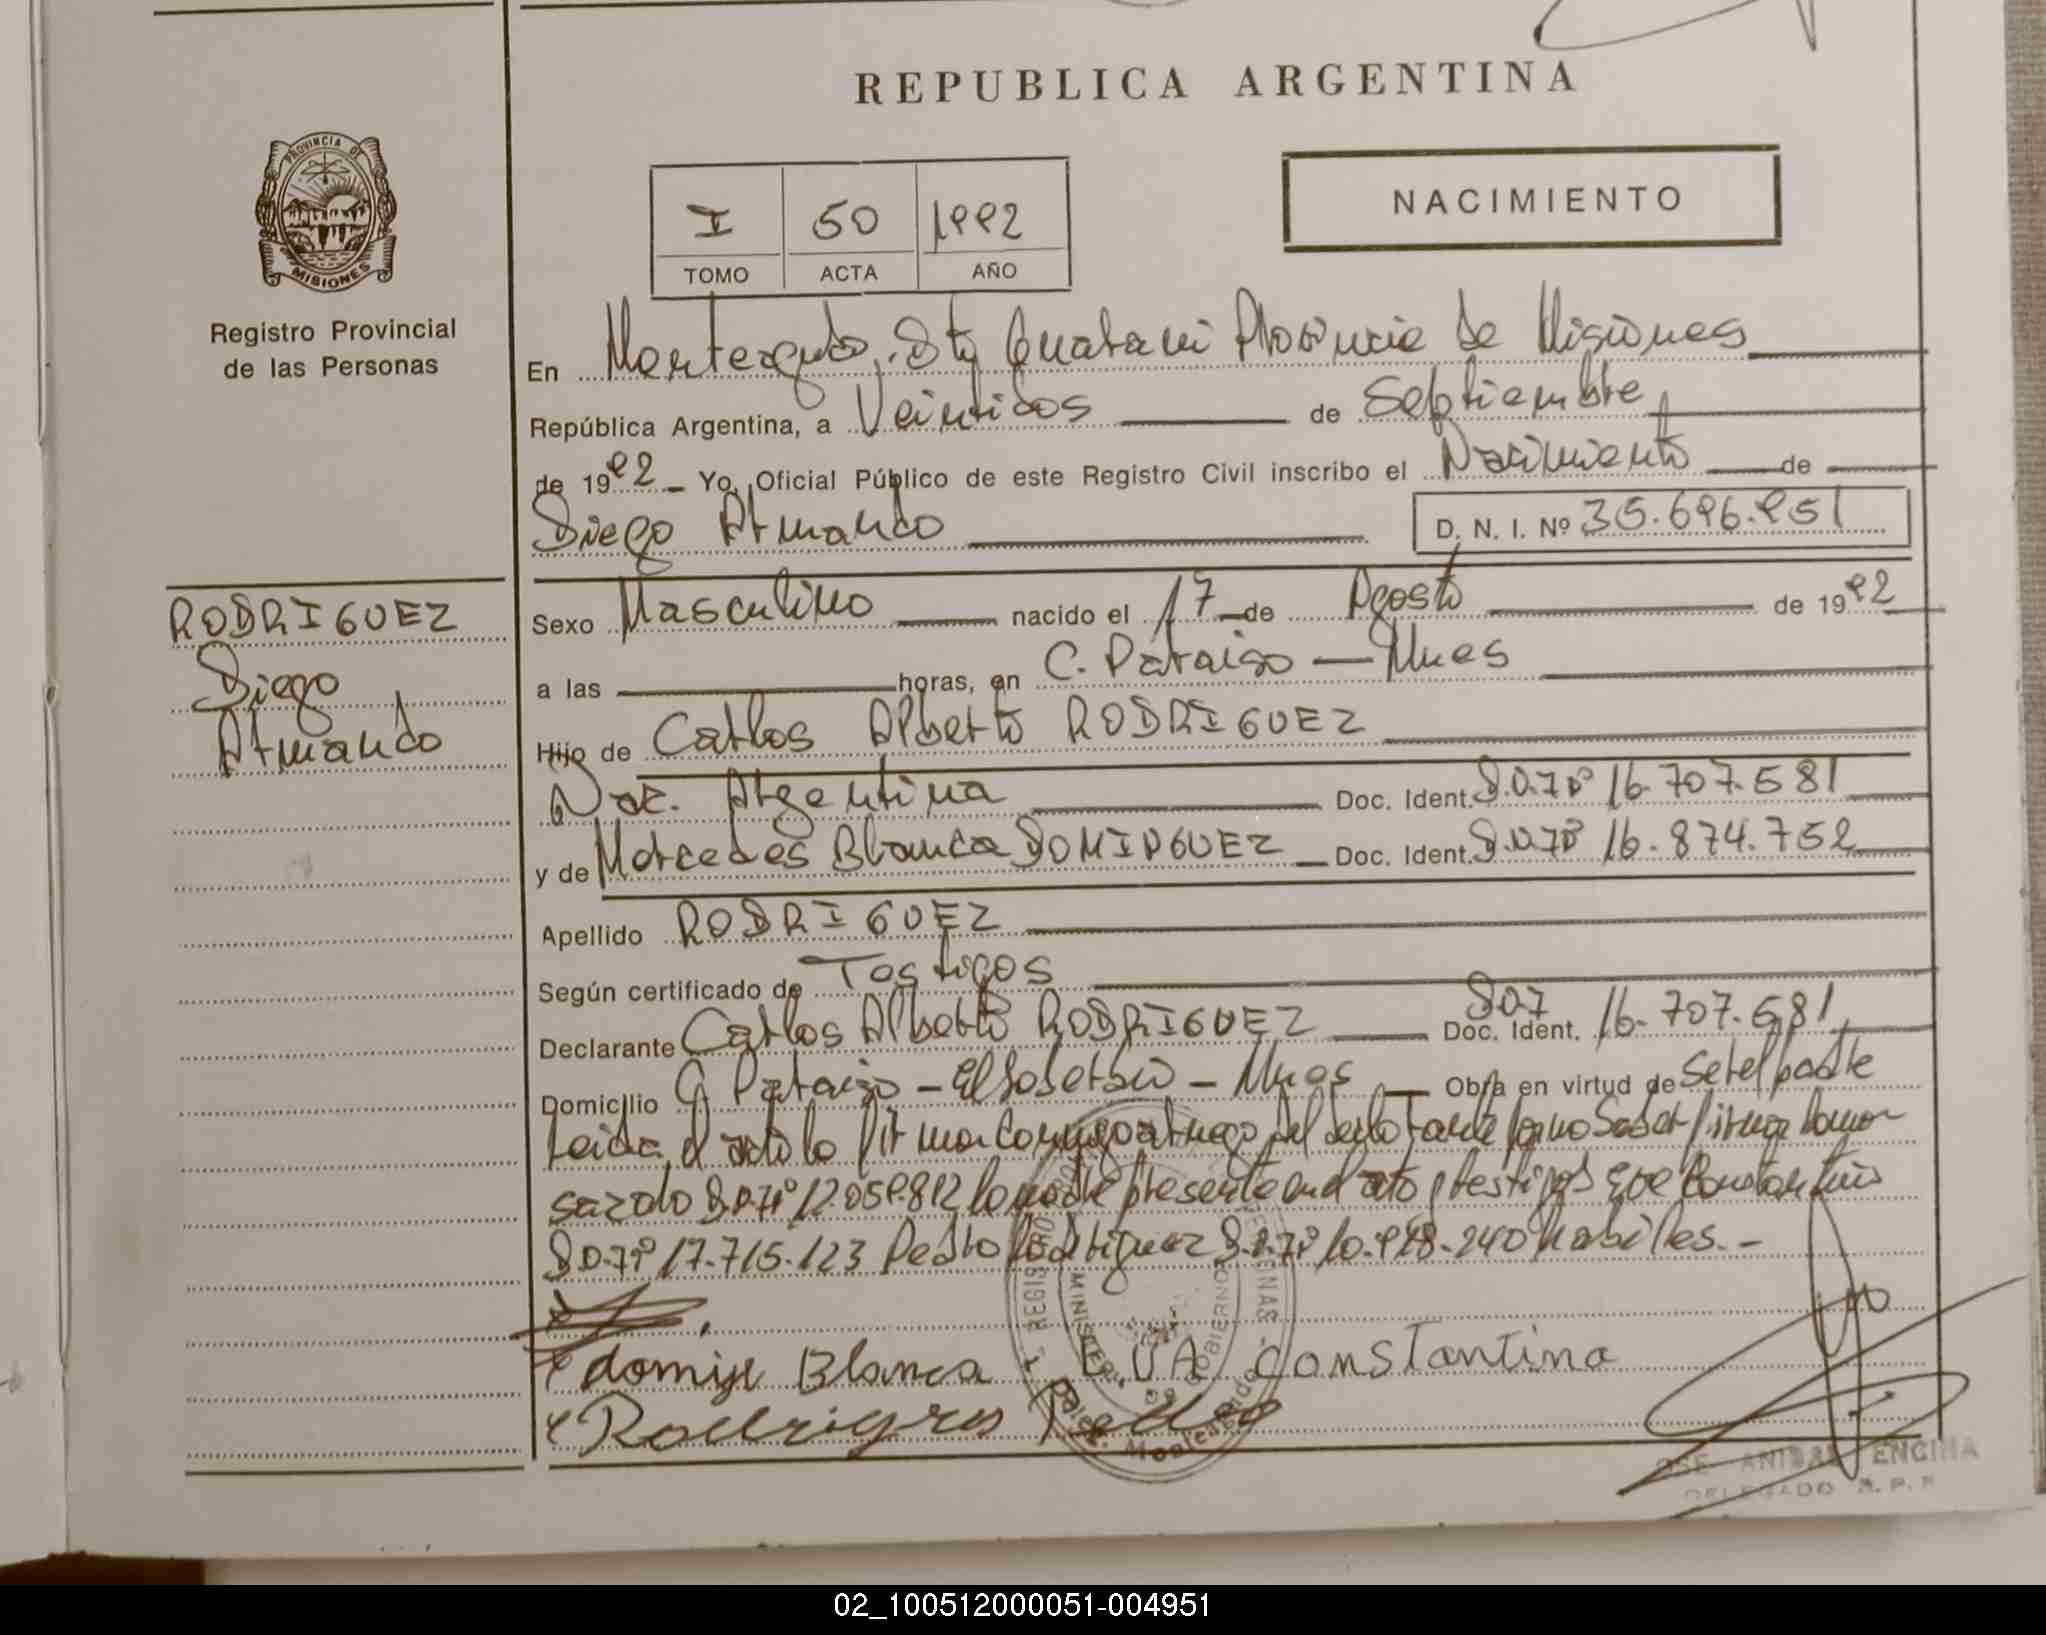 REPUBLICA ARGENTINA
NACIMIENTO
I 50 1992
TOMO ACTA AÑO
PROVINCIA DE
MISIONES
Registro Provincial
de las Personas
En Monteagudo, Dto Guarani Provincia de Misiones
República Argentina, a Veintidos de Septiembre
de 1992 Yo, Oficial Público de este Registro Civil inscribo el Nacimiento de
Diego Armando D. N. I. Nº 35.696.951
RODRIGUEZ
Diego
Armando
Sexo Masculino nacido el 17 de Agosto de 1992
a las horas, en C. Paraiso - Mnes
Hijo de Carlos Alberto RODRIGUEZ
Nac. Argentina Doc. Ident. D.N.Iº 16.707.581
y de Mercedes Blanca DOMINGUEZ Doc. Ident. D.N.Iº 16.874.752
Apellido RODRIGUEZ
Según certificado de Testigos
Declarante Carlos Alberto RODRIGUEZ Doc. Ident. DNI 16.707.581
Domicilio C. Paraiso - El Soberbio - Mnes Obra en virtud de Ser el padre
Leida el acta la firma conmigo a ruego del declarante por no saber firmar
D.N.Iº 12.059.812 la madre presente en el acto, testigos
D.N.Iº 17.715.123 Pedro Rodriguez D.N.Iº 10.928.240 habiles.-
Blanca EVA Constantina
Pedro
REGISTRO PERSONAS
MINISTERIO DE GOBIERNO
Monteagudo
JOSE ANIBAL ENCINA
DELEGADO R. P. P.
02_100512000051-004951